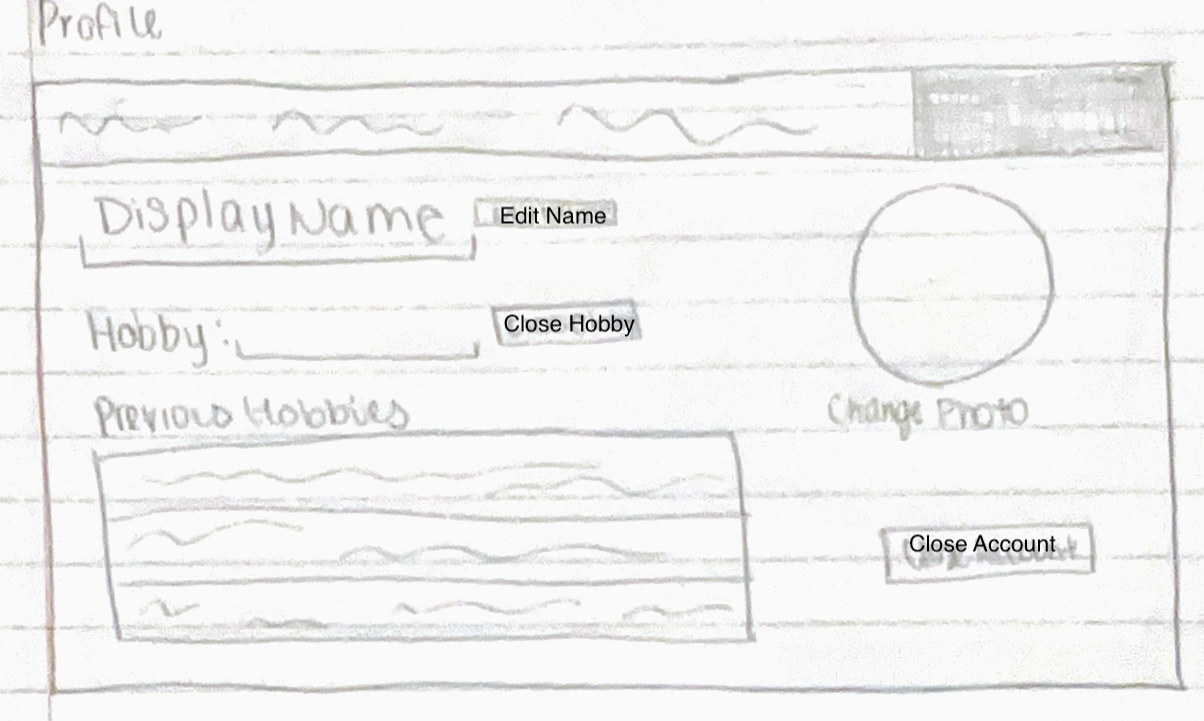 Profile
Display Name Edit Name
Hobby: Close Hobby
Previous Hobbies
Change Photo
Close Account